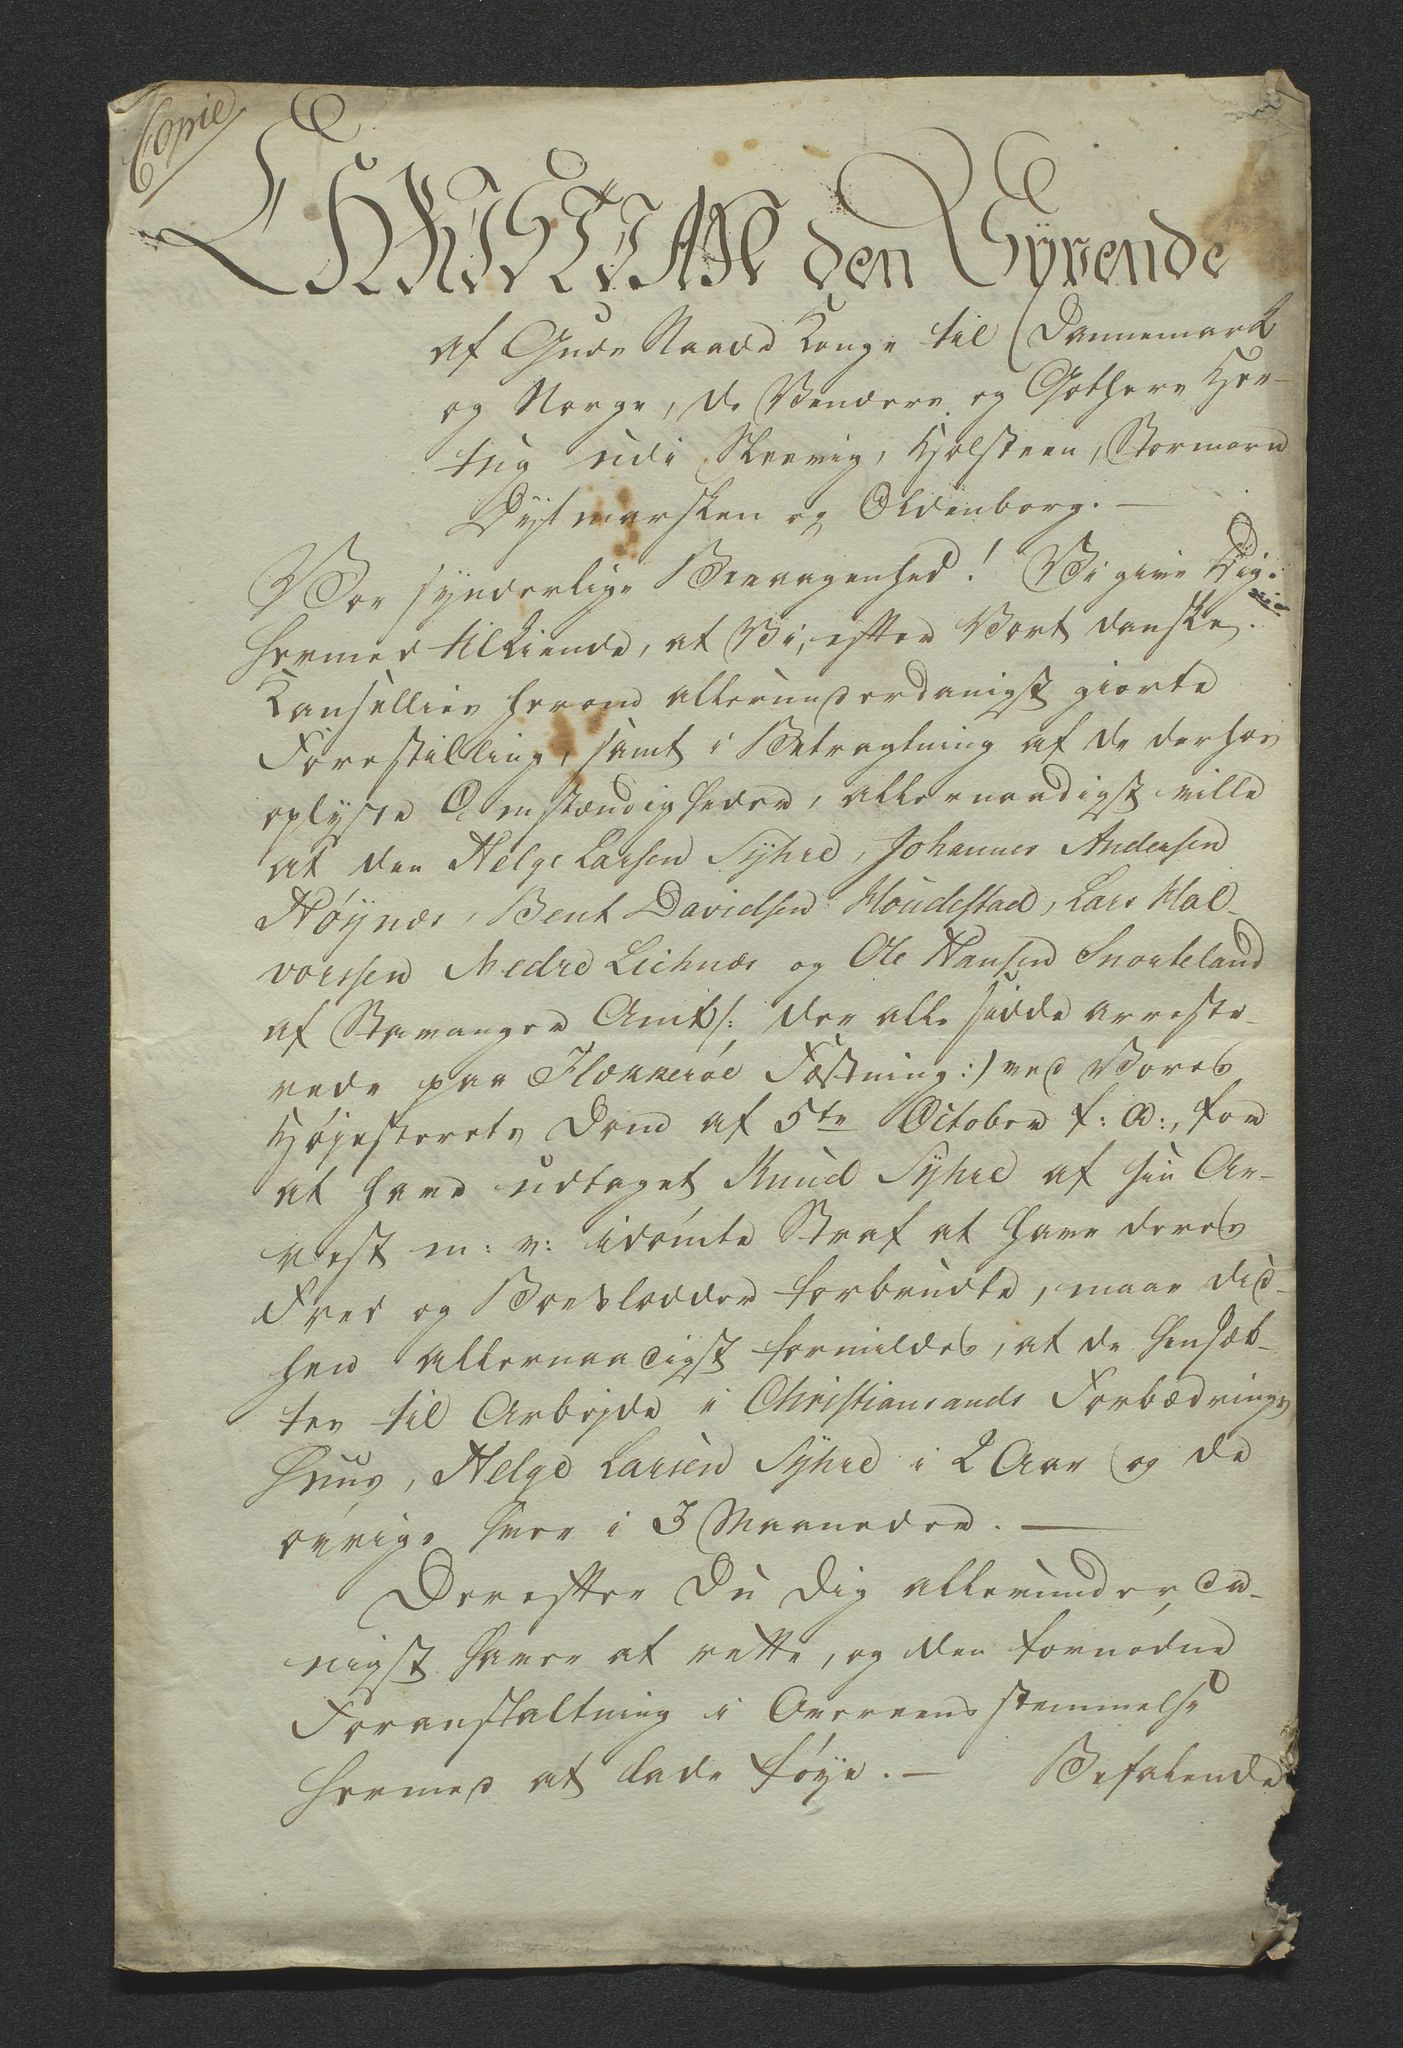 Copie
CHRISTIAN den Syvende
af Guds Naade Konge til Dannemark
og Norge, de Venders og Gothers Her-
tug udi Slesvig, Holsteen, Stormarn
Dytmarsken og Oldenborg. —
Vor synderlige Bevaagenhed! Vi give Dig
hermed tilkiende, at Vi, efter Vort danske
Cancellies herom allerunderdanigst giorte
Forestilling, samt i Betragtning af de derhos
oplyste Omstændigheder, allernaadigst ville
at den Helge Larsen Syhre, Johannes Andersen
Høynæs, Bent Davidsen Houdestad, Lars Hal-
vorssen Nedre Liehnæs og Ole Hansen Snorteland
af Stavanger Amt /: der alle sidde arreste-
rede paa Flækkerøe Fæstning :/ ved Vores
Høyesterets Dom af 5te October f: A:, for
at have udtaget Knud Syhre af sin Ar-
rest m: v: idømte Straf at have deres
Fred og Boeslodder forbrudte, maae did-
hen allernaadigst formildes, at de hensæt-
tes til Arbejde i Christiansands Forbædrings
Huus, Helge Larsen Syhre i 2 Aar og de
øvrige hver i 3 Maaneder. —
Derefter Du Dig allerunderda-
nigst haver at rette, og den fornødne
Foranstaltning i Overeensstemmelse
hermed at lade føye. — Befalende